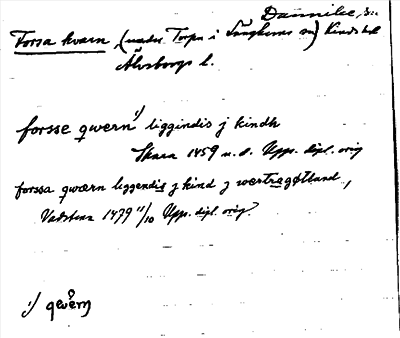 Dannike, sn
Forsa kvarn, (under Torpa i Länghems sn) Kinds hd
Älvsborgs l.
forsse qwern 1) liggindis j kindh
Skara 1459 u. d. Upps. dipl. orig
forssa qwærn liggendis j kind j wæstragøtland,
Vadstena 1479 11/10 Upps. dipl. orig.
1) qwern